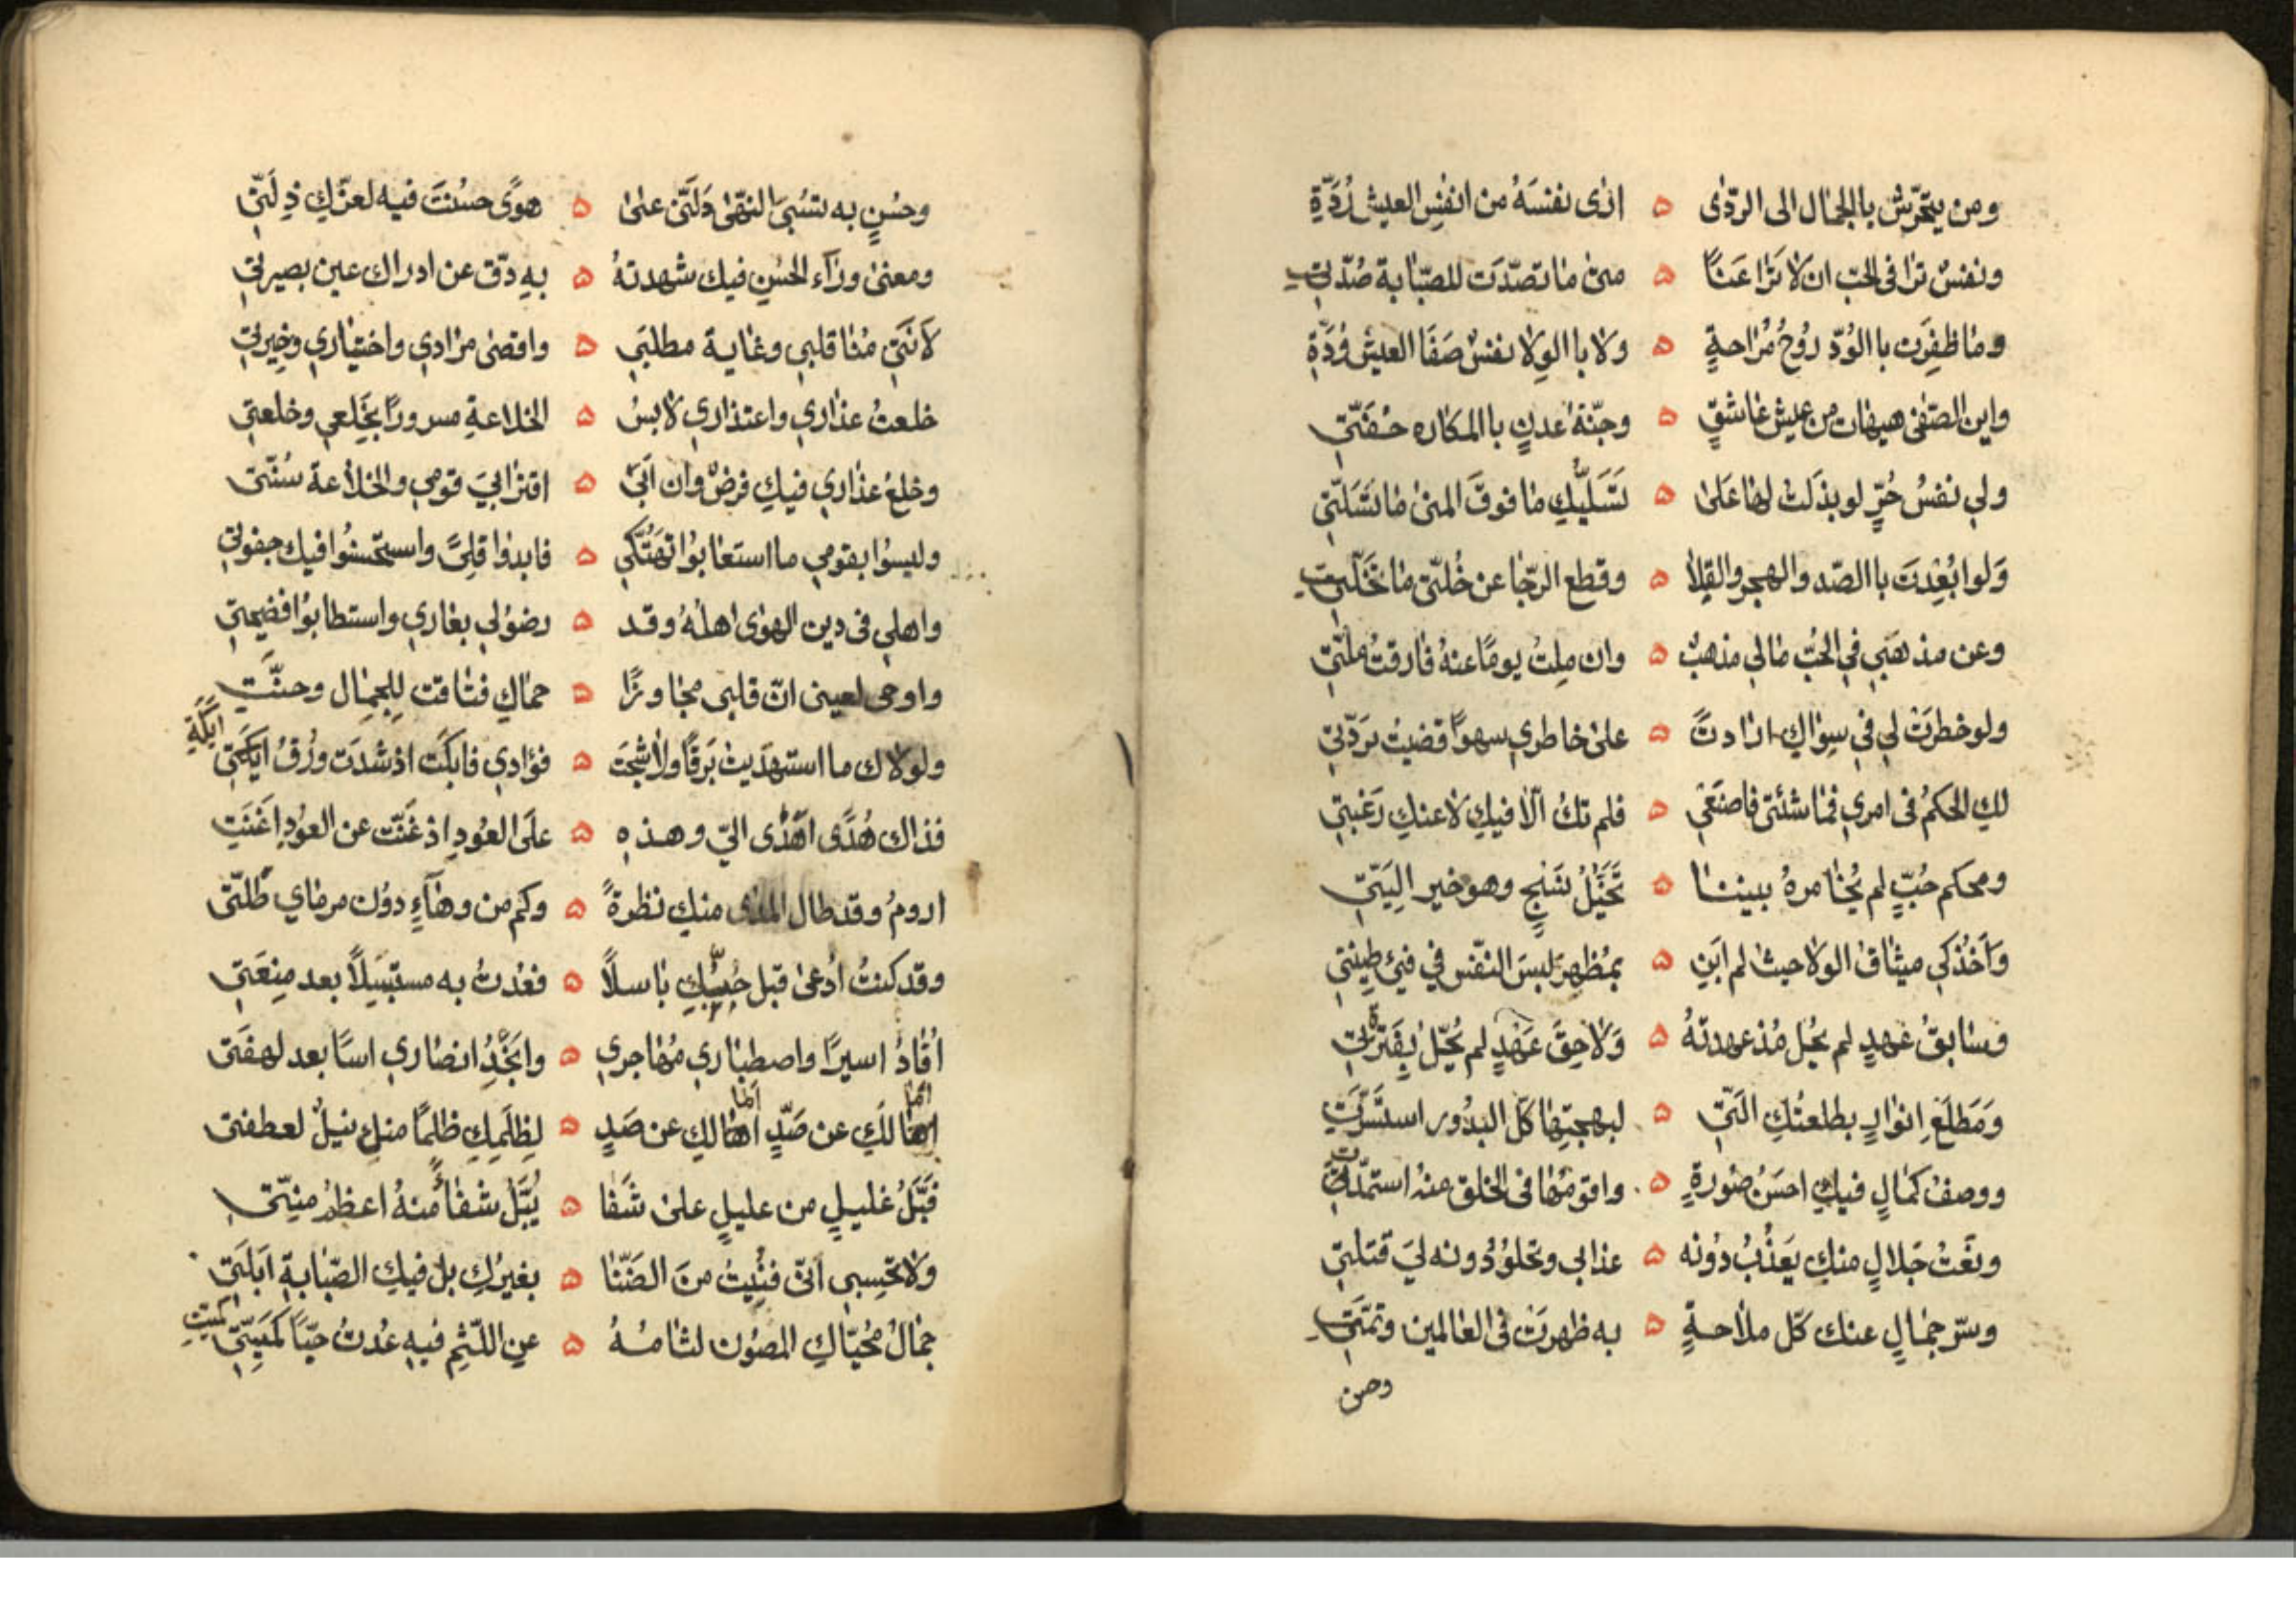 ومن يتحرّش باالجمال الى الرّدٰى ۵ اٰرٰى نفسَهُ من انفُسِ العيش رُدَّةِ
ونفسٌ ترٰا فى الحب ان لا تَرٰا عَنًا ۵ متىٰ مٰا تصدّت للصّبابة صُدّتِ
ومٰا ظفِرَت باالوُدّ روُحٌ مُرٰاحةٍ ۵ ولا باالوِلا نفسٌ صَفَا العيش وُدَّةِ
واين الصّفٰى هيهات من عيش عٰاشقٍ ۵ وجنّة عدنٍ باالمكٰاره حُفّتِ
ولي نفسُ حُرٍّ لو بذَلت لهٰا عَلىٰ ۵ تَسَلّيكِ مٰا فوقَ المنىٰ مٰا تَسَلّتِ
وَلو ابُعِدتَ باالصّد والهجر والقِلاٰ ۵ وقطع الرّجٰا عن خُلّتى مٰا تخَلّتِ
وعن مذهَبي في الحُبّ مٰالي مذهبٌ ۵ وان مِلتُ يومًا عنهُ فٰارقتُ ملّتي
ولو خطرَتْ لي في سِوٰاكِ ارٰادتً ۵ علىٰ خاطري سهوًا قضيتُ بردّتي
لكِ الحكمُ فى امري فمٰا شئتى فاصنَعي ۵ فلم تكُ الّا فيكِ لاٰ عنكِ رَغبتي
ومحكم حُبٍّ لم يُخٰامرهُ بيننٰا ۵ تخَيّلُ نسَخٍ وهو خير اليَتّي
وَاَخْذكِ ميثٰاق الولاٰ حيث لم ابَنِ ۵ بمُظهرِ لبسَ النّفس في فيئِ طِينتي
وسٰابقُ عَهدٍ لم يحُل مُذ عهدتهُ ۵ وَلاٰحِقَ عَهْدٍ لم يُحّل بِفَترتي
وَمَطلَعِ انوٰارٍ بطلعتُكِ الّتي ۵ لبهجتِهٰا كلّ البدُور استَسَرّتِ
ووصفُ كمٰالٍ فيكِ احسَنُ صُورةٍ ۵ واقومُهٰا فى الخلق منهُ استمّدّتِ
ونَعْتُ جَلالٍ منكِ يعَذُبُ دُونه ۵ عذابي وتحلوُ دُونه ليَ قتلتي
وسّر جمٰالٍ عنك كلّ ملاٰحةٍ ۵ به ظهرتْ فى العٰالمين وتمّتِ
وحسن
وحُسْنٍ به تُسبىَ النهّىٰ دَلّتى علىٰ ۵ هوًى حسُنتَ فيه لعزّكِ ذِلّتي
ومعنىٰ ورٰآء الحُسنِ فيك شهدتهُ ۵ بهِ دقّ عن ادراك عين بصيرتي
لاَنتي مُنٰا قلبي وغٰاية مطلبي ۵ واقصٰى مرٰادي واختيٰاري وخِيرتي
خلعتُ عذٰاري واعتذٰاري لاٰبسُ ۵ الخلاعةِ مسرورًا بخَلعي وخلعتي
وخلعُ عذٰاري فيكِ فرضٌ وان اَبىٰ ۵ اقترٰابيَ قومي والخلاٰعة سُنّتى
وليسوُا بقومي ما استعٰابوُا تهتُّكي ۵ فابدوٰا قلِىً واستحسنوُا فيك جفوتي
واهلي فى دين الهوٰى اهلهُ وقد ۵ رضوُلي بعٰاري واستطابوُا فضيحتي
واوحى لعينى انّ قلبى مجٰاورًا ۵ حمٰاكِ فتٰاقت لِلجمٰال وحنّتِ
ولولاٰك ما استهدَيت بَرقًا ولاٰ شجَت ۵ فؤادي فابكَت اذ شدَت وُرْقُ ايَكتي
اَيْكَةِ
فذٰاك هُدًى اهَدٰى اليّ وهذهِ ۵ علَى العوُدِ اذ غَنّت عن العوُدِ اغَنَتِ
ارومُ وقد طال المدٰى منكِ نظرةً ۵ وكم من دمٰآءٍ دوُن مرمٰاي طُلّتى
وقد كنتُ اُدعىٰ قبل حُبّيكِ بٰاسلاً ۵ فعُدتُ به مستبسَلاً بعد مِنعَتي
اقُٰادُ اسيرًا واصطبٰاري مُهٰاجري ۵ وانجَدُ انصٰاري اسًا بعد لهفَتى
اَمَا لَكِ عن صَدٍّ اَمَالكِ عن صَدٍ ۵ لِظلَمكِ ظلمًا منكِ نيلٌ لعطفتى
فبَّلُ غليلٍ من عليلٍ علىٰ شَفٰا ۵ يُبَّلُ شفٰاً مُنهُ اعظمُ منيّتى
وَلاٰ تحَسِبي اَنّى فنُيِتُ منَ الضّنٰا ۵ بغيرُكِ بل فيكِ الصّبٰابةِ ابَلَتي
جمٰالُ مُحيّاكِ المصُون لثٰامُهُ ۵ عنِ اللّثمِ فيهِ عُدتُ حيّاً كمَيّتي
كميّتِ